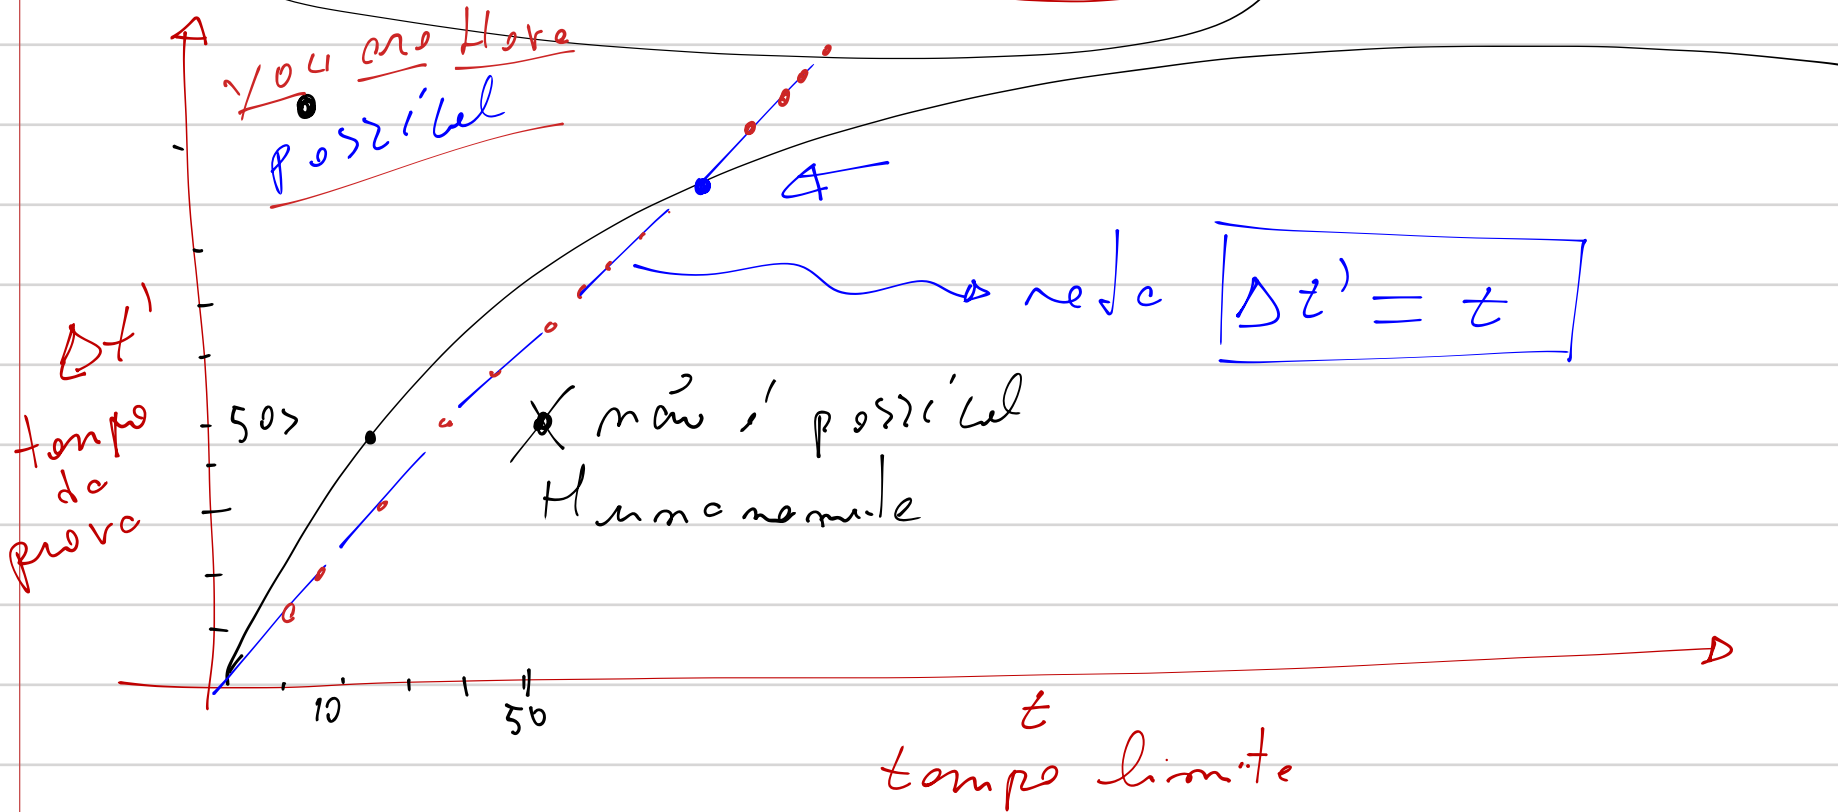 You are Here
possível
reta Δt' = t
Δt'
tempo
da
prova
50s
não é possível
Humanamente
10
50
t
tempo limite